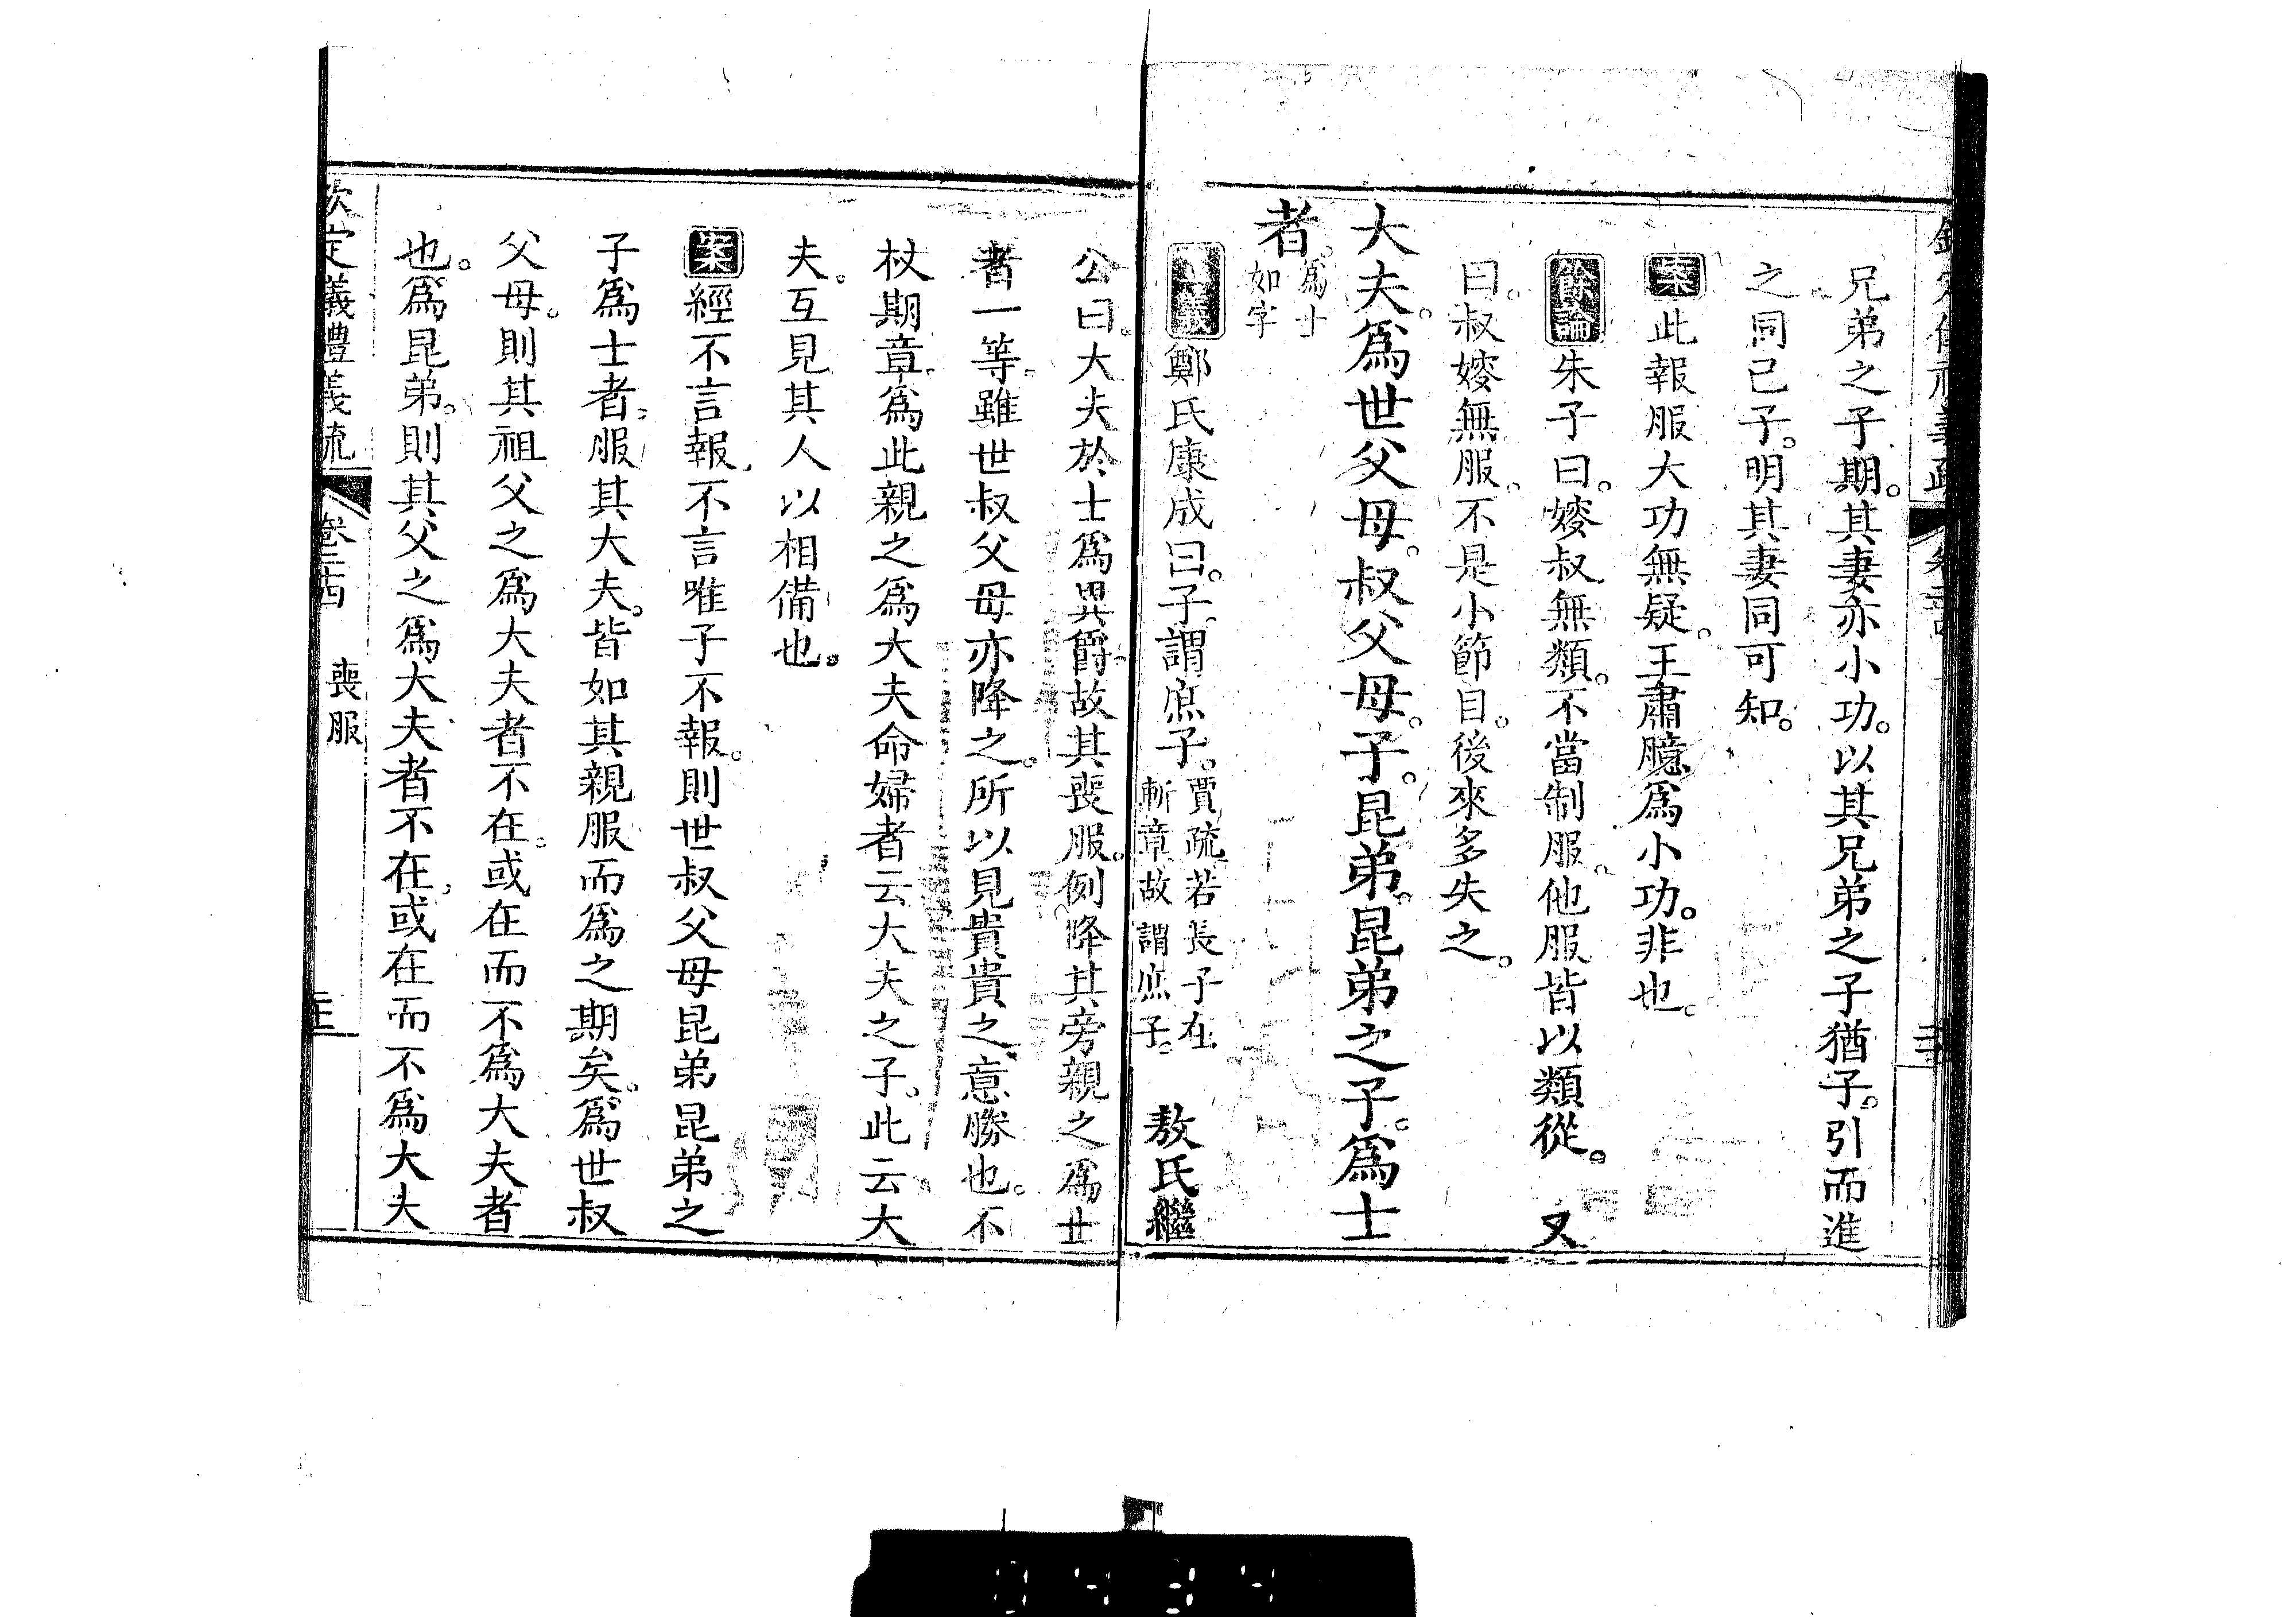 兄弟之子期。其妻亦小功。以其兄弟之子猶子。引而進
之同己子。明其妻同可知。
案此報服大功無疑。王肅臆爲小功。非也。
餘論朱子曰。嫂叔無類。不當制服。他服皆以類從。　又
曰。叔嫂無服。不是小節目。後來多失之。
大夫。爲世父母。叔父母。子。昆弟。昆弟之子。爲士
者。爲士如字
義鄭氏康成曰。子。謂庶子。賈疏。若長子在斬章。故謂庶子。　敖氏繼
公曰。大夫於士爲異爵。故其喪服。例降其旁親之爲士
者一等。雖世叔父母亦降之。所以見貴貴之意勝也。不
杖期章。爲此親之爲大夫命婦者云大夫之子。此云大
夫。互見其人以相備也。
案經不言報。不言唯子不報。則世叔父母昆弟昆弟之
子爲士者。服其大夫。皆如其親服而爲之期矣。爲世叔
父母。則其祖父之爲大夫者不在。或在而不爲大夫者
也。爲昆弟。則其父之爲大夫者不在。或在而不爲大夫
欽定儀禮義疏　卷二十四　喪服